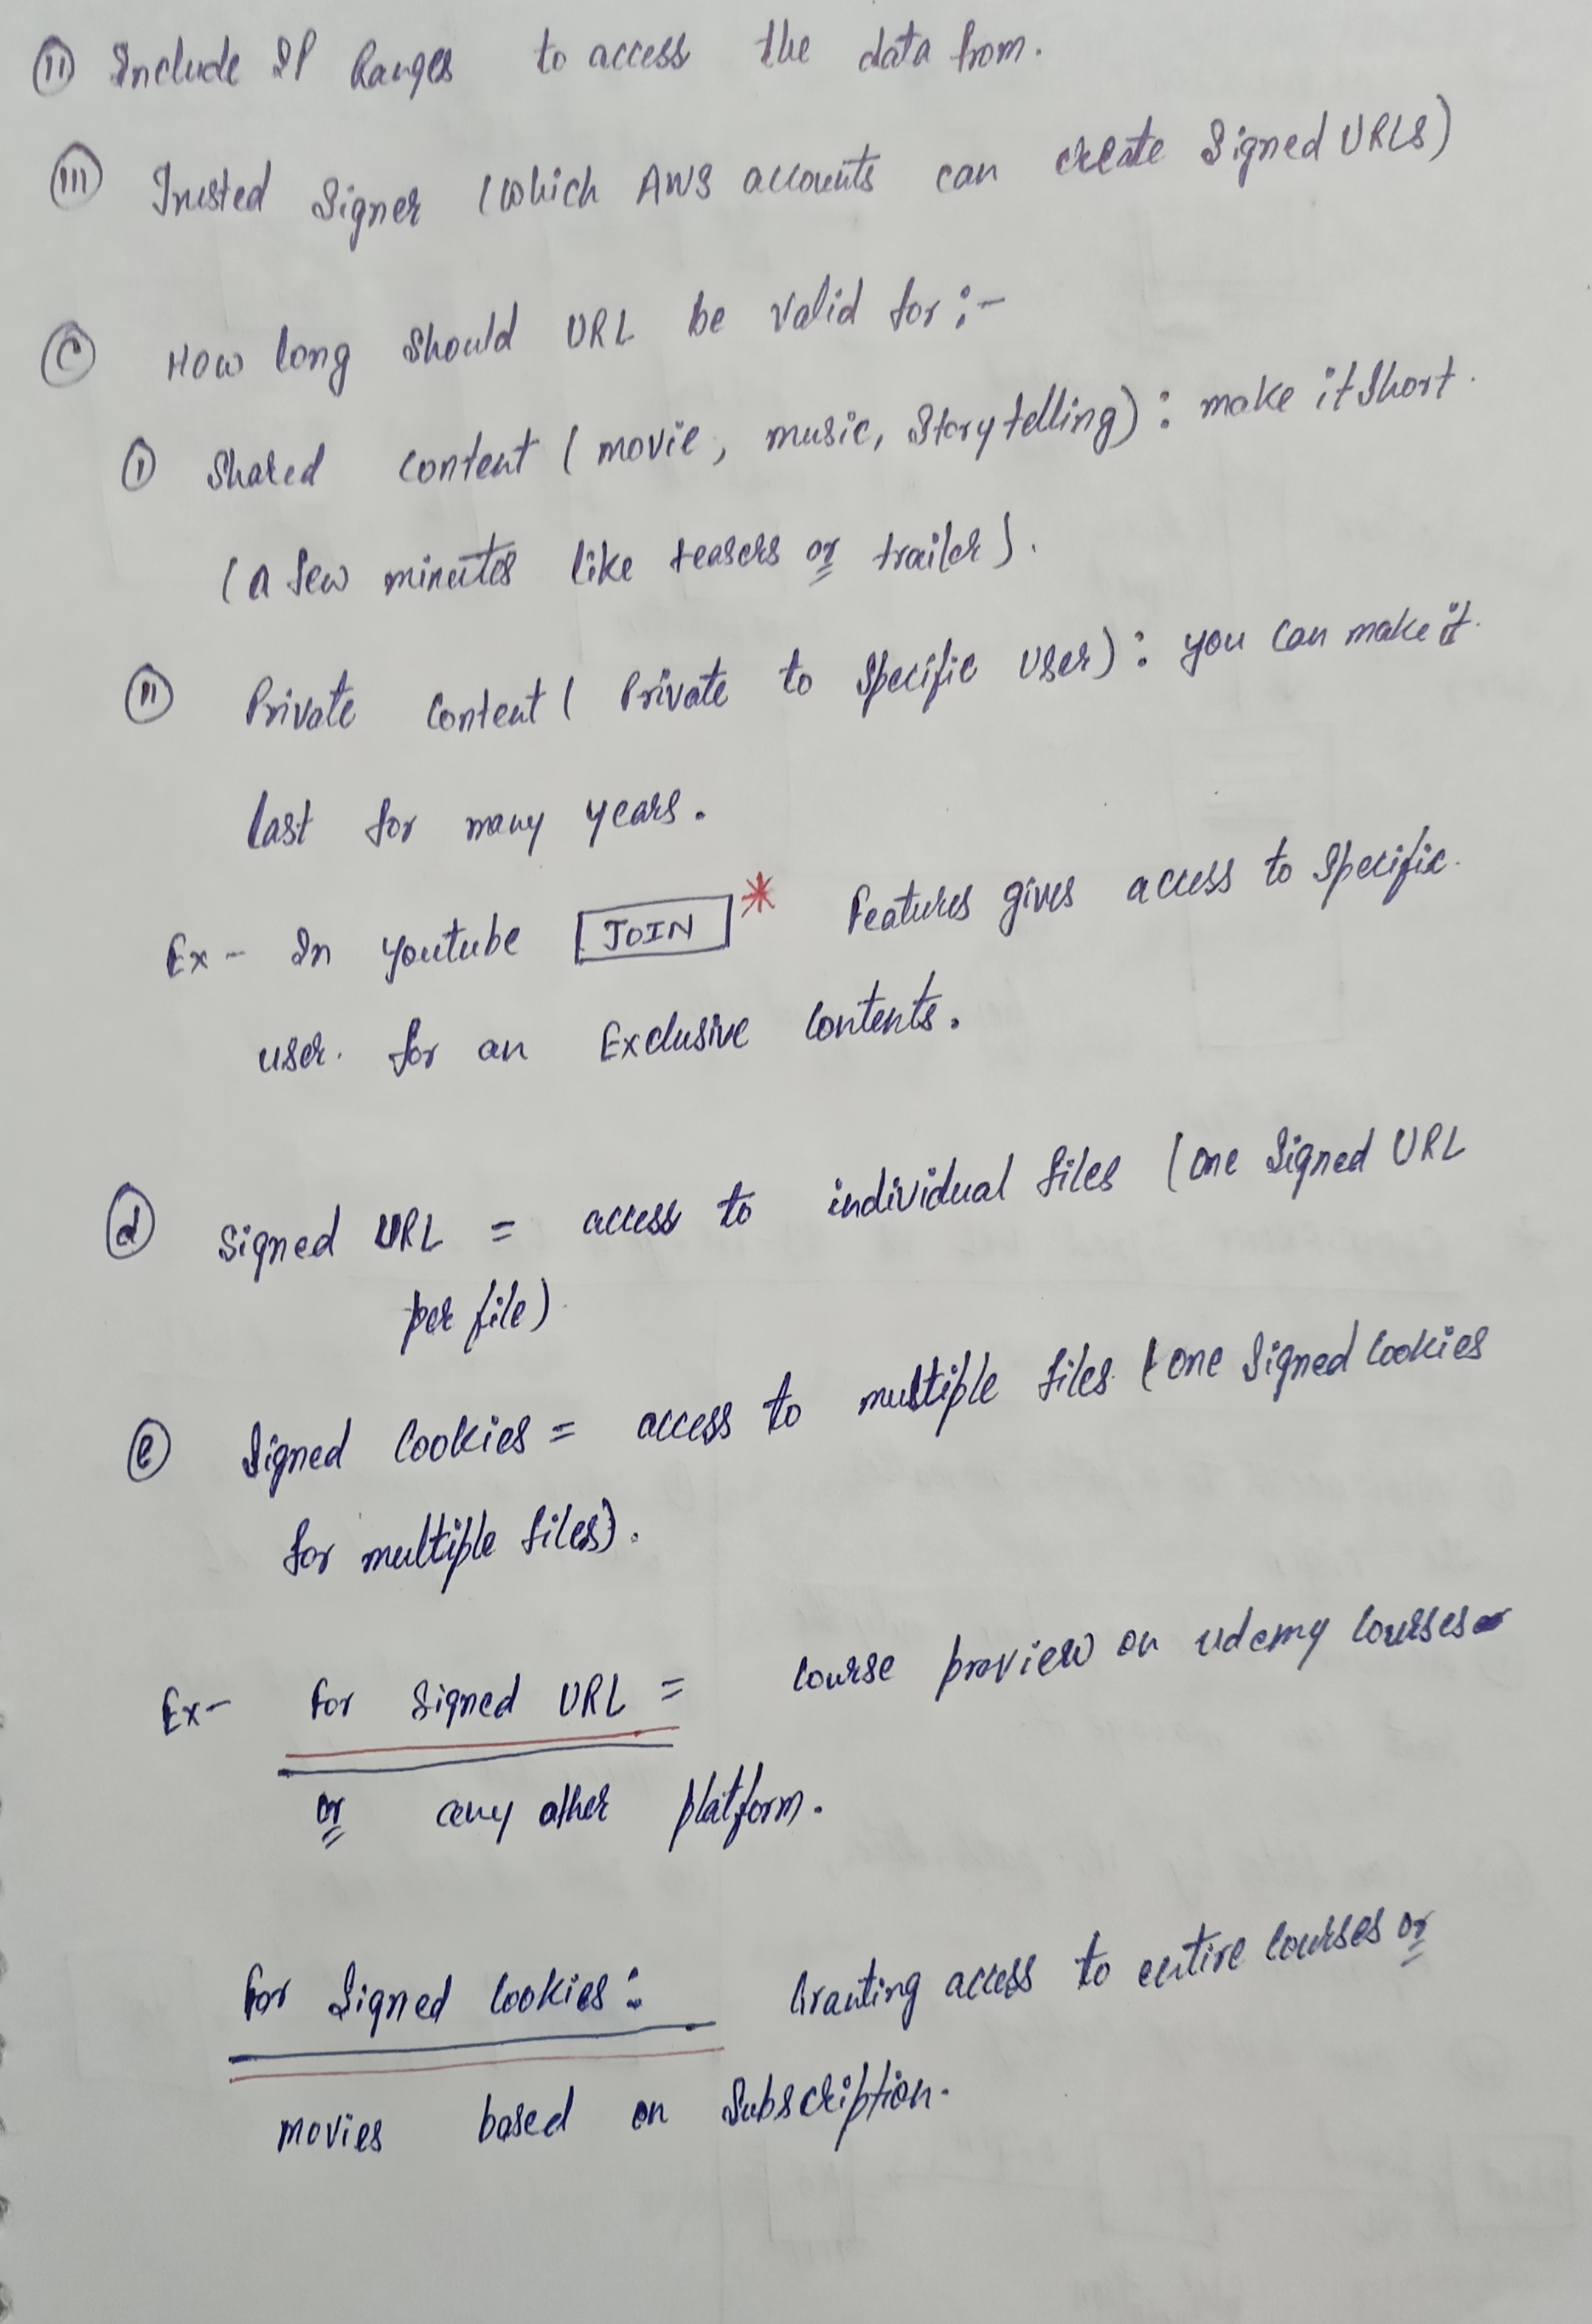 (ii) Include IP Ranges to access the data from.
(iii) Trusted Signer (which AWS accounts can create Signed URLs)
(c) How long should URL be valid for :-
(i) Shared content ( movie, music, Storytelling) : make it short.
(a few minutes like teasers or trailer).
(ii) Private content ( Private to specific user) : you can make it
last for many years.
Ex - In youtube [JOIN] * Features gives access to specific
user. for an Exclusive contents.
(d) Signed URL = access to individual files (one Signed URL
per file)
(e) Signed Cookies = access to multiple files (one Signed Cookies
for multiple files).
Ex - For Signed URL = course preview on udemy courses
or any other platform.
For Signed Cookies : Granting access to entire courses or
movies based on Subscription.